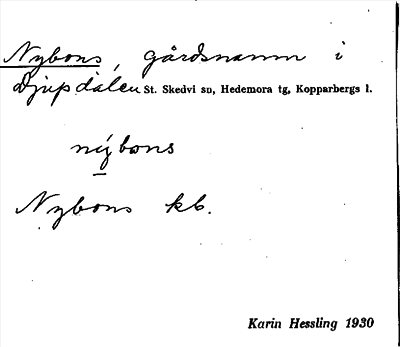 Nybons, gårdsnamn i
Djupdalen St. Skedvi sn, Hedemora tg, Kopparbergs l.
nýbons
Nybons kb.
Karin Hessling 1930